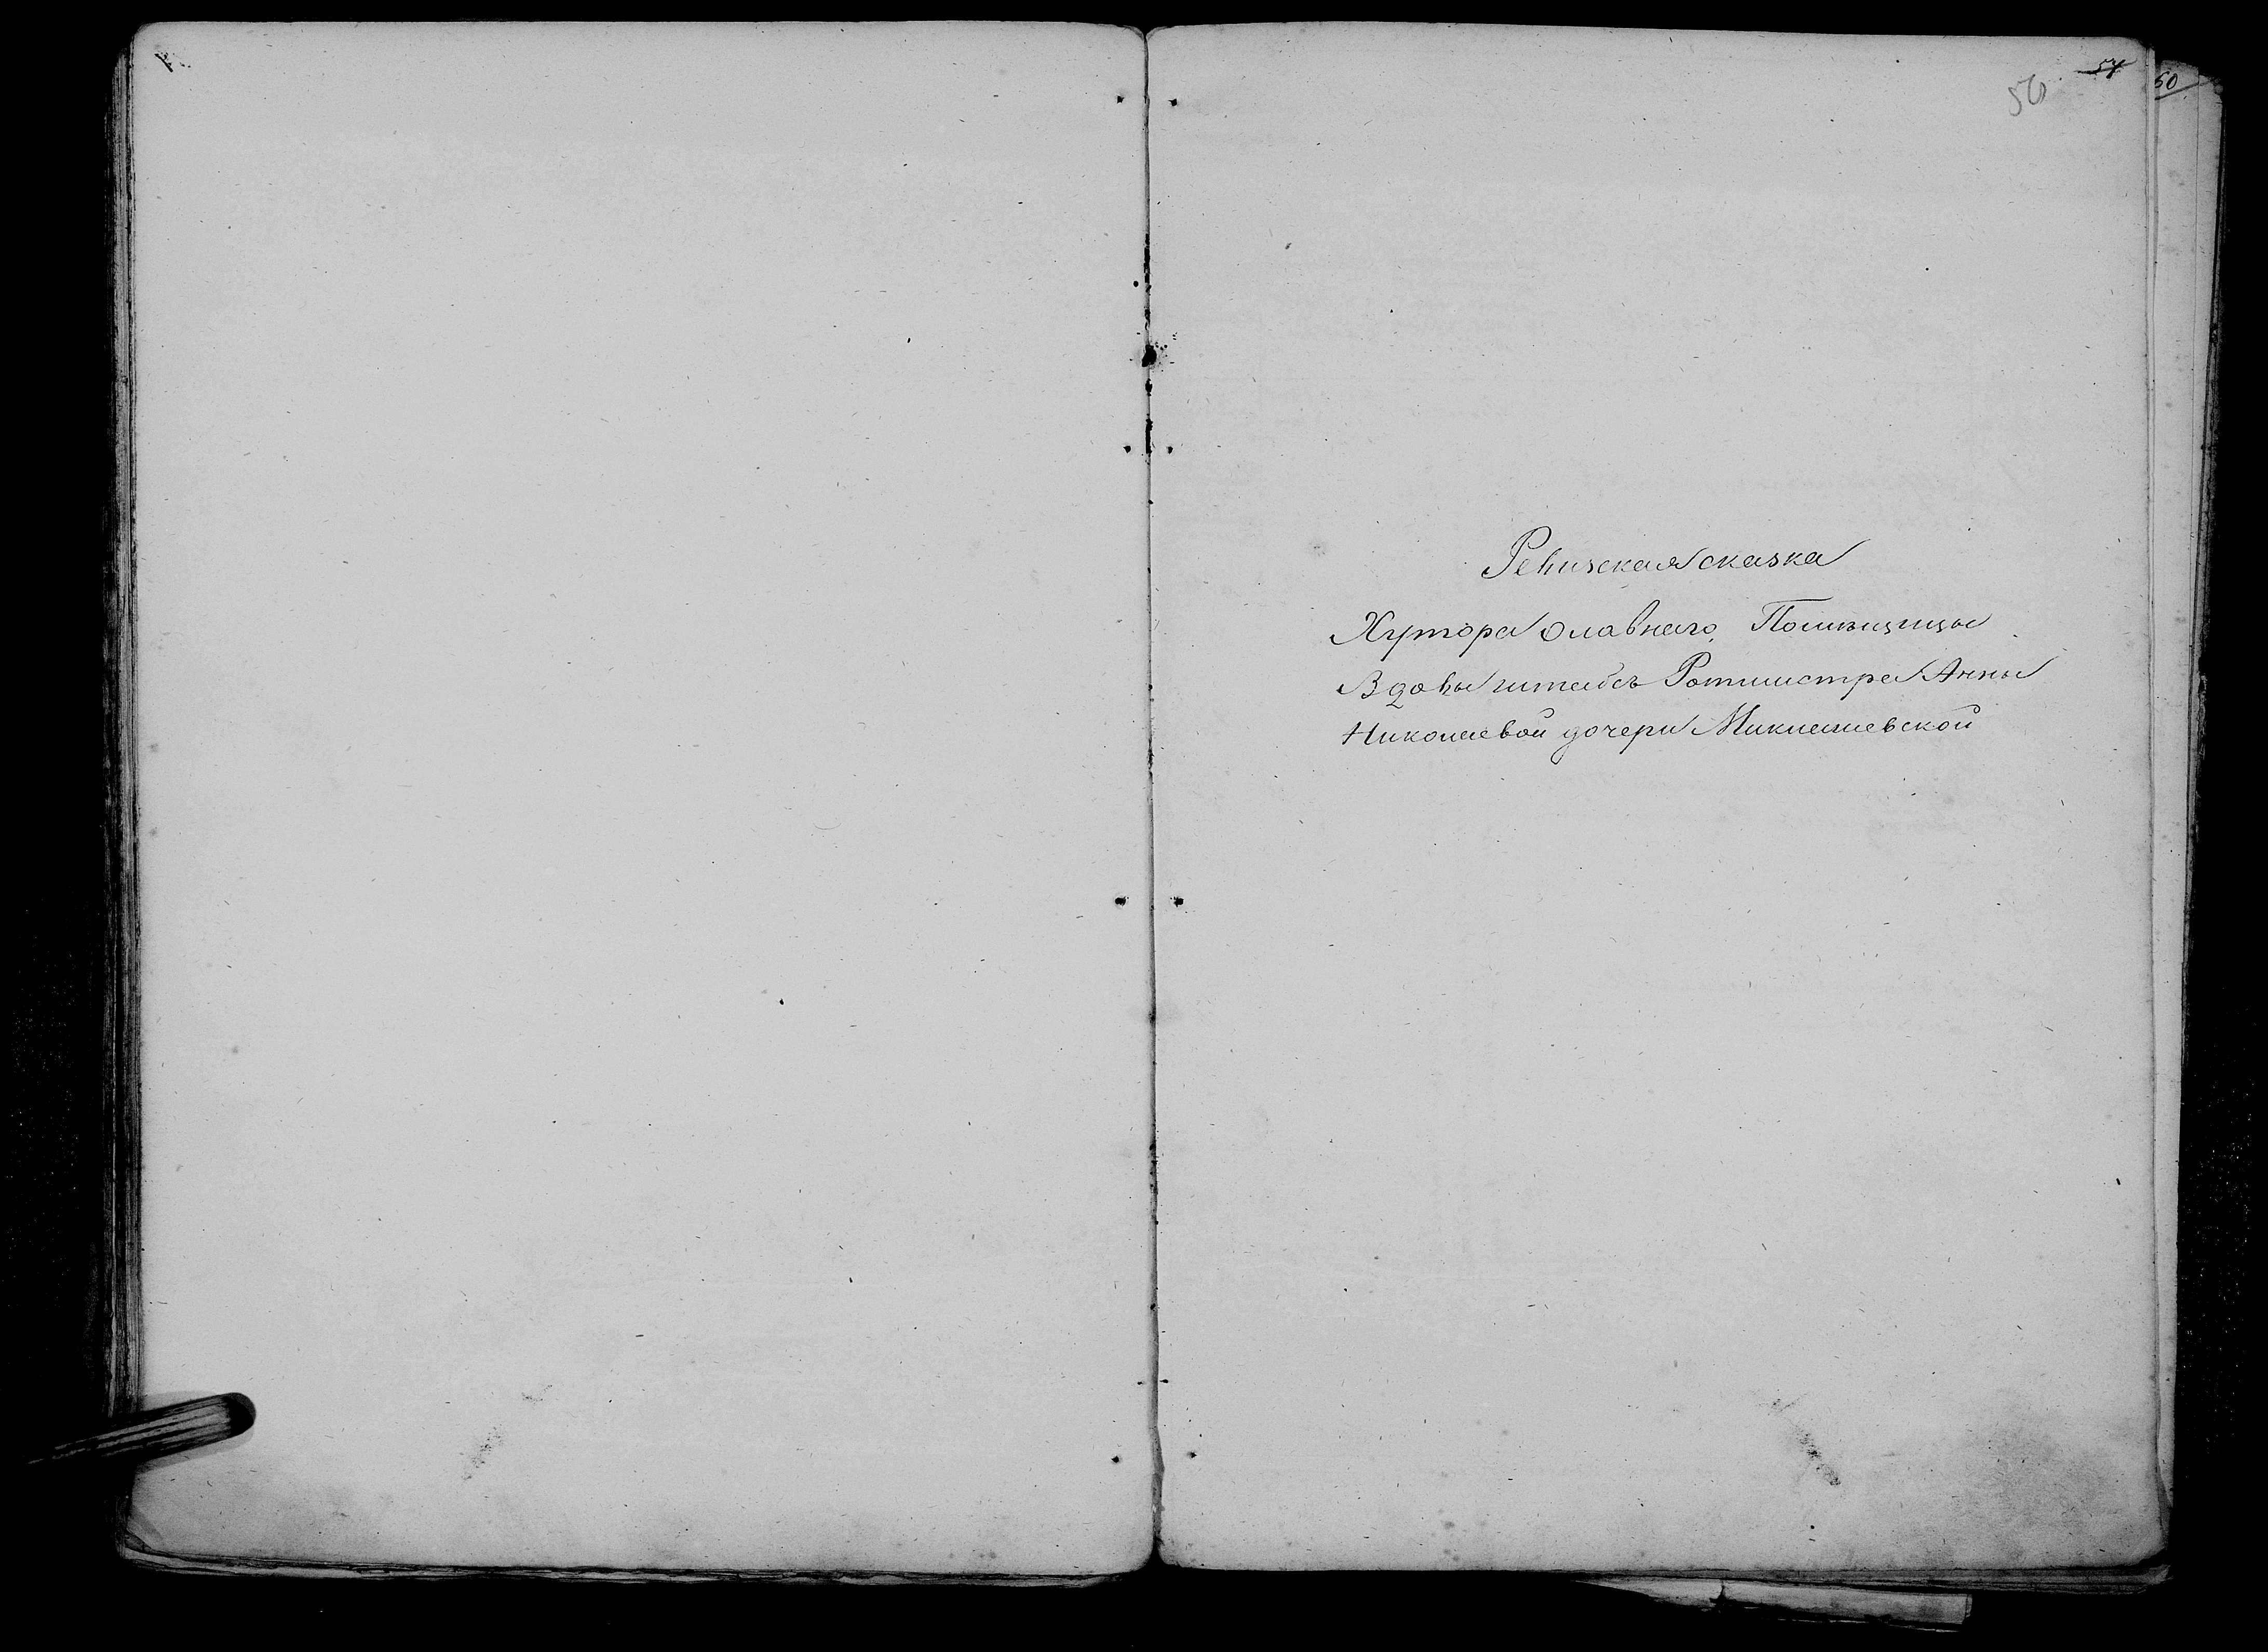 54
56
60
Ревизская сказка
Хутора Славнаго, Помѣщицы
Вдовы штабсъ Ротмистра Анны
Николаевой дочери Миклашевской